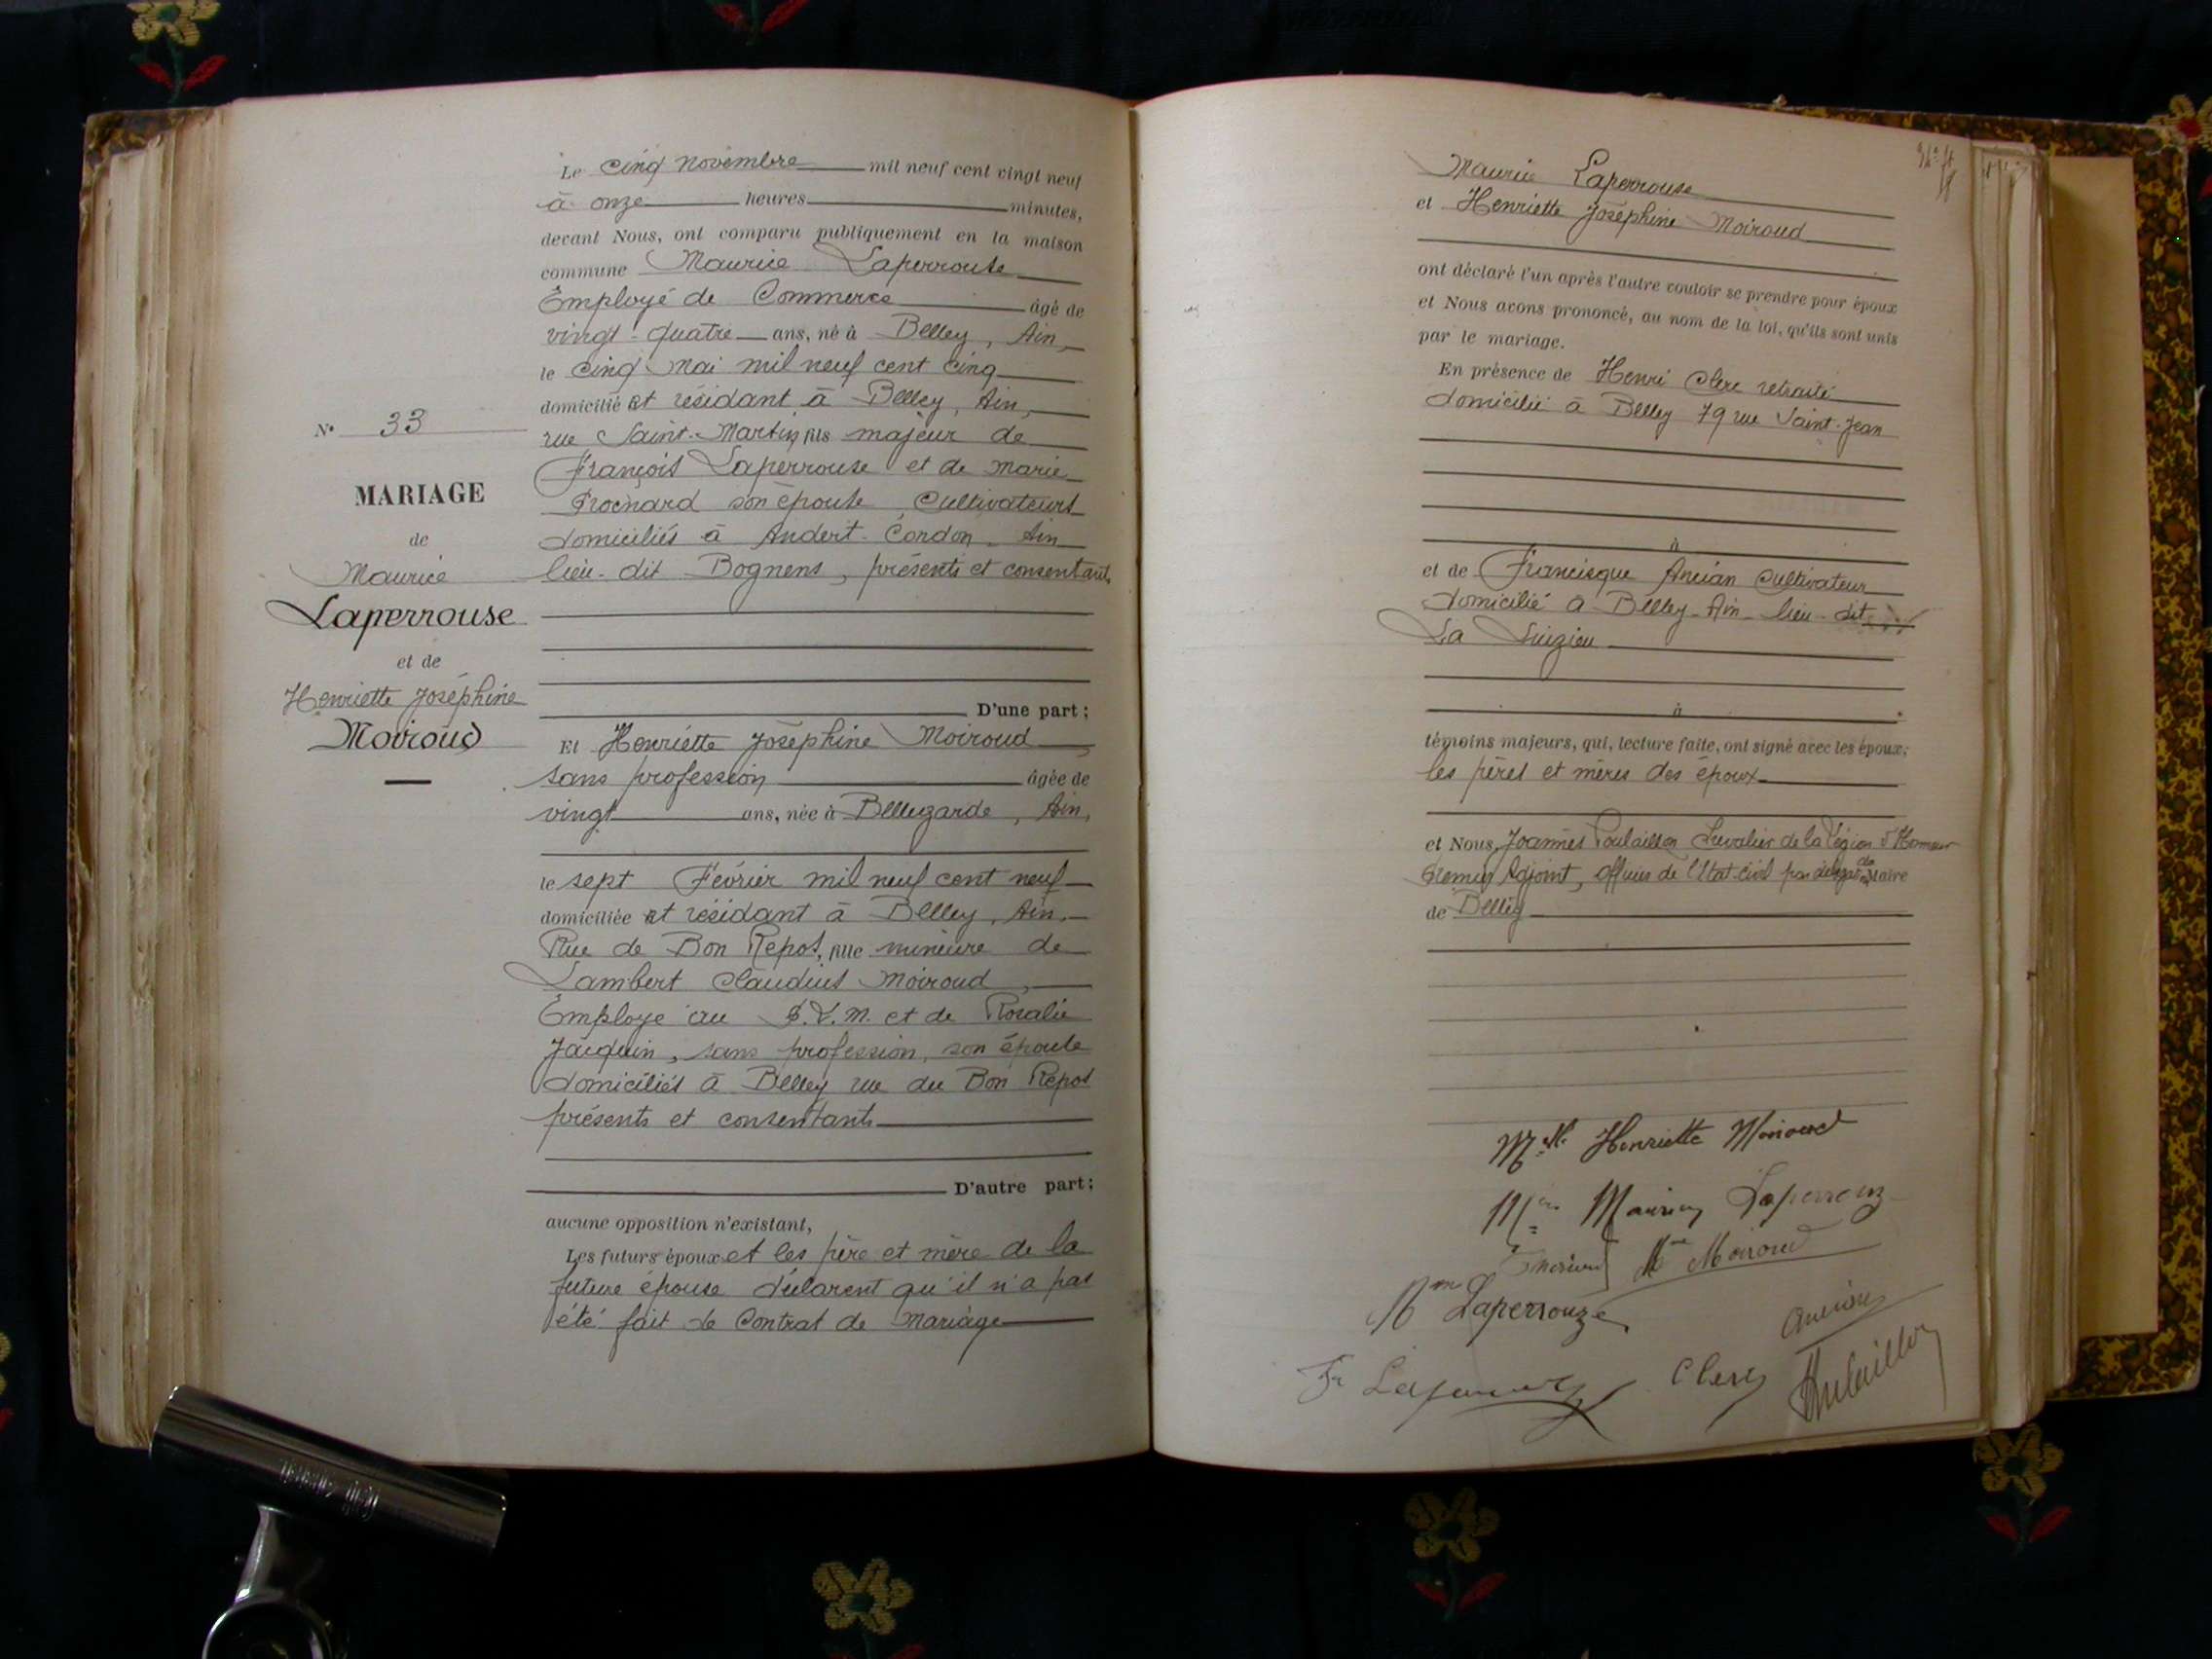 N° 33
MARIAGE
de
Maurice
Laperrouse
et de
Henriette Joséphine
Moiroud
Le cinq novembre mil neuf cent vingt neuf
à onze heures minutes,
devant Nous, ont comparu publiquement en la maison
commune Maurice Laperrouse
Employé de Commerce âgé de
vingt-quatre ans, né à Belley, Ain,
le cinq mai mil neuf cent cinq
domicilié et résidant à Belley, Ain,
rue Saint-Martin, fils majeur de
François Laperrouse et de marie
son épouse, Cultivateurs
domiciliés à Andert-Condon Ain
lieu-dit Bognens, présents et consentants
D'une part;
Et Henriette Joséphine Moiroud,
sans profession âgée de
vingt ans, née à Bellegarde, Ain,
le sept Février mil neuf cent neuf
domiciliée et résidant à Belley, Ain,
Rue de Bon Repos, fille mineure de
Lambert Claudius Moiroud,
Employé au P.L.M. et de Rosalie
Jacquin, sans profession, son épouse
domiciliés à Belley rue du Bon Repos
présents et consentants
D'autre part;
aucune opposition n'existant,
Les futurs époux et les père et mère de la
future épouse déclarent qu'il n'a pas
été fait de Contrat de Mariage
Maurice Laperrouse
et Henriette Joséphine Moiroud
ont déclaré l'un après l'autre vouloir se prendre pour époux
et Nous avons prononcé, au nom de la loi, qu'ils sont unis
par le mariage.
En présence de Henri Clerc retraité
domicilié à Belley 79 rue Saint-Jean
à
et de Francisque Ancian Cultivateur
domicilié à Belley-Ain-lieu-dit
La
à
témoins majeurs, qui, lecture faite, ont signé avec les époux,
les pères et mères des époux
et Nous, Joannès Poulaillon Chevalier de la Légion d'Honneur
Premier Adjoint, officier de l'Etat-Civil par délégation du Maire
de Belley
Mlle Henriette Moiroud
Mr Maurice Laperrouze
Moiroud Mme Moiroud
Mme Laperrouze
Ancian
Fr Laperrouze Clerc Poulaillon